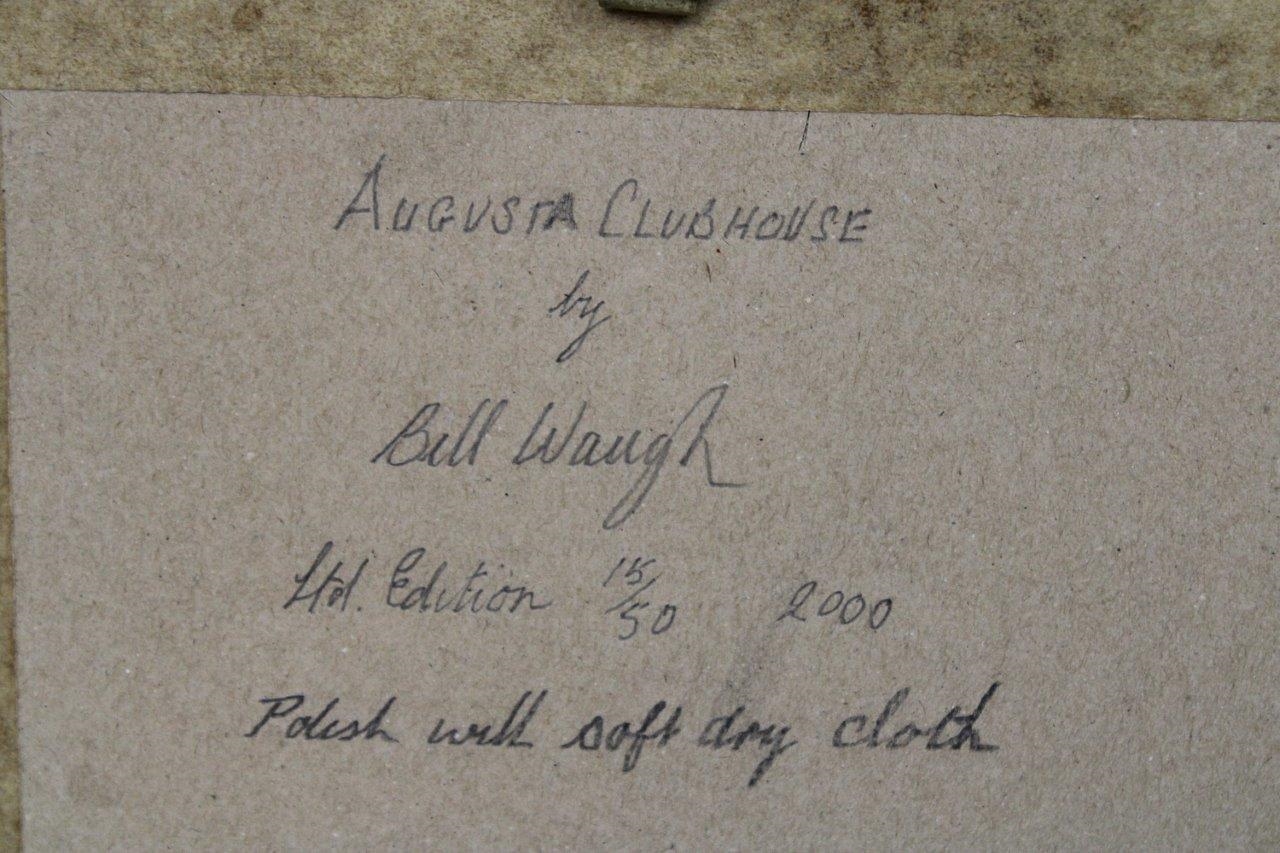 AUGUSTA CLUBHOUSE
by
Bill Waugh
Ltd. Edition 15/50 2000
Polish with soft dry cloth